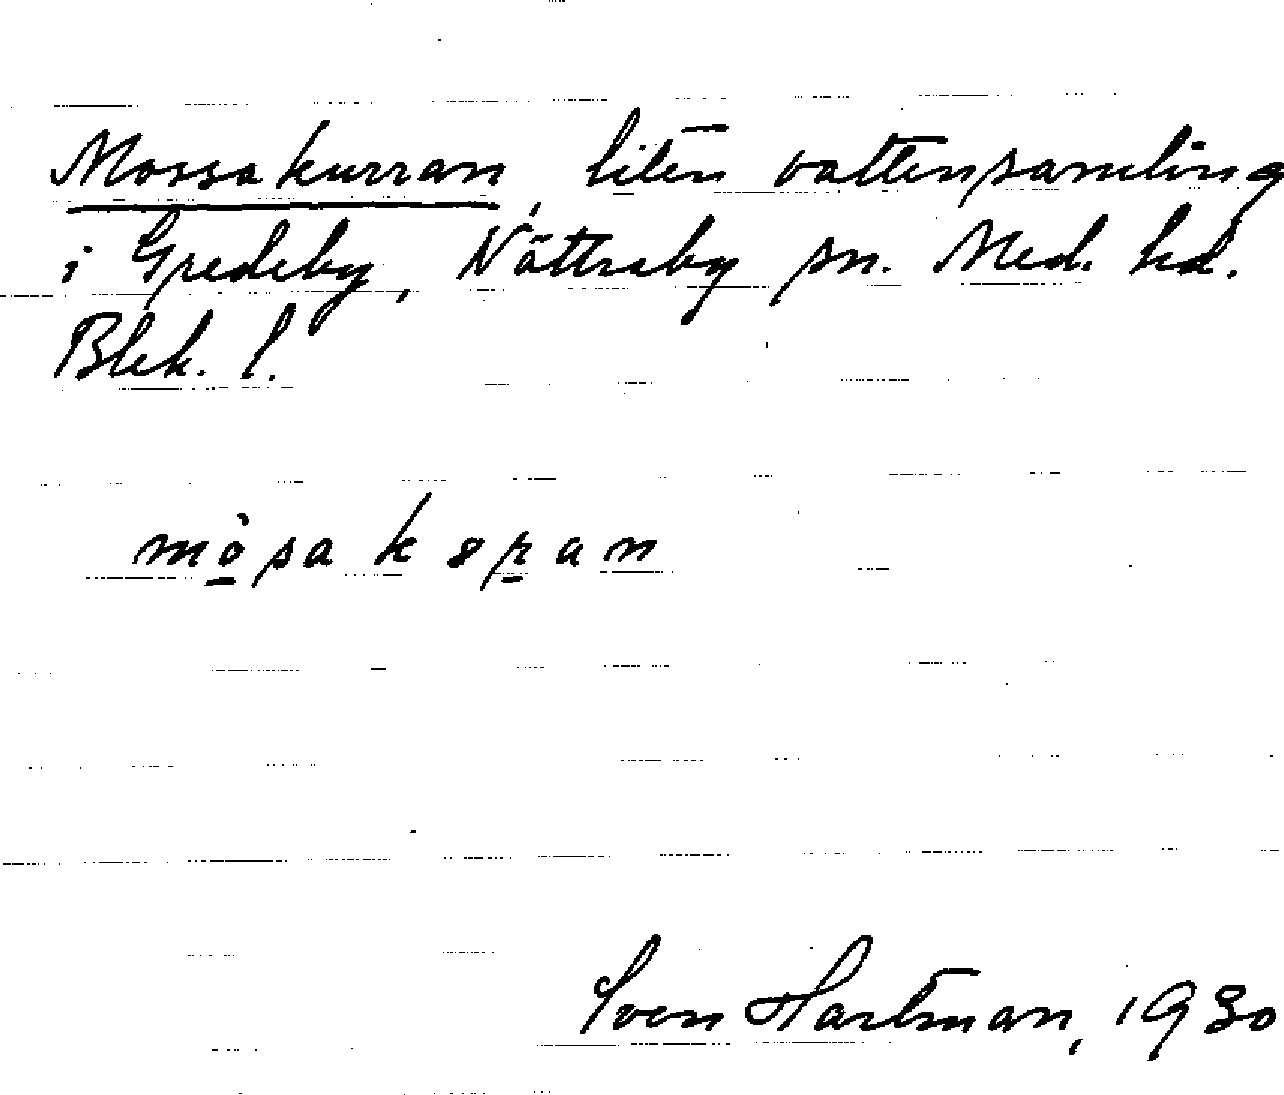 Mossakurran, liten vattensamling
i Gredeby, Nättraby sn. Med. hd.
Blek. l.
mòsakȣran
Sven Hartman, 1930